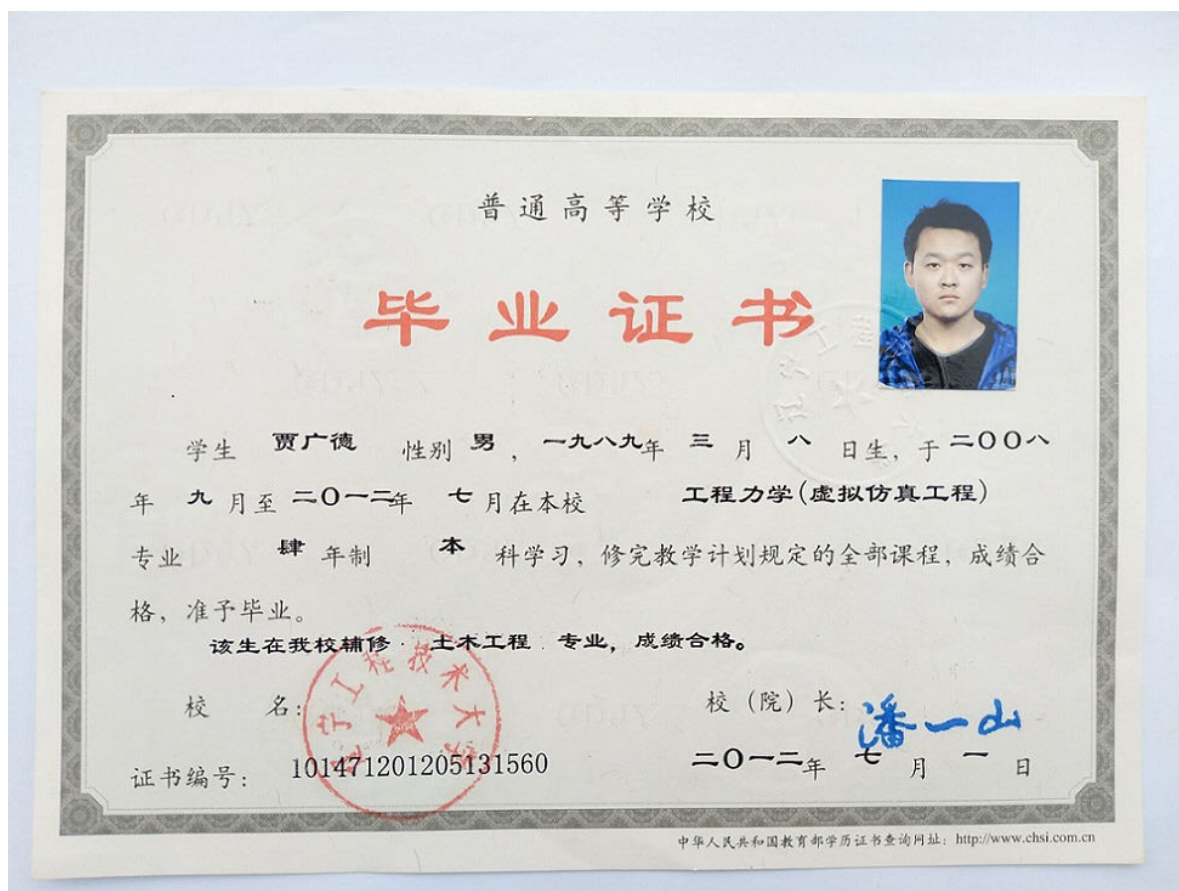 普通高等学校
毕业证书
学生 贾广德 性别 男，一九八九年 三 月 八 日生，于 二〇〇八
年 九 月至 二〇一二年 七 月在本校 工程力学(虚拟仿真工程)
专业 肆 年制 本 科学习，修完教学计划规定的全部课程，成绩合
格，准予毕业。
该生在我校辅修 土木工程 专业，成绩合格。
校 名：
辽宁工程技术大学
校（院）长：潘一山
证书编号：101471201205131560
二〇一二年 七 月 一 日
中华人民共和国教育部学历证书查询网址：http://www.chsi.com.cn